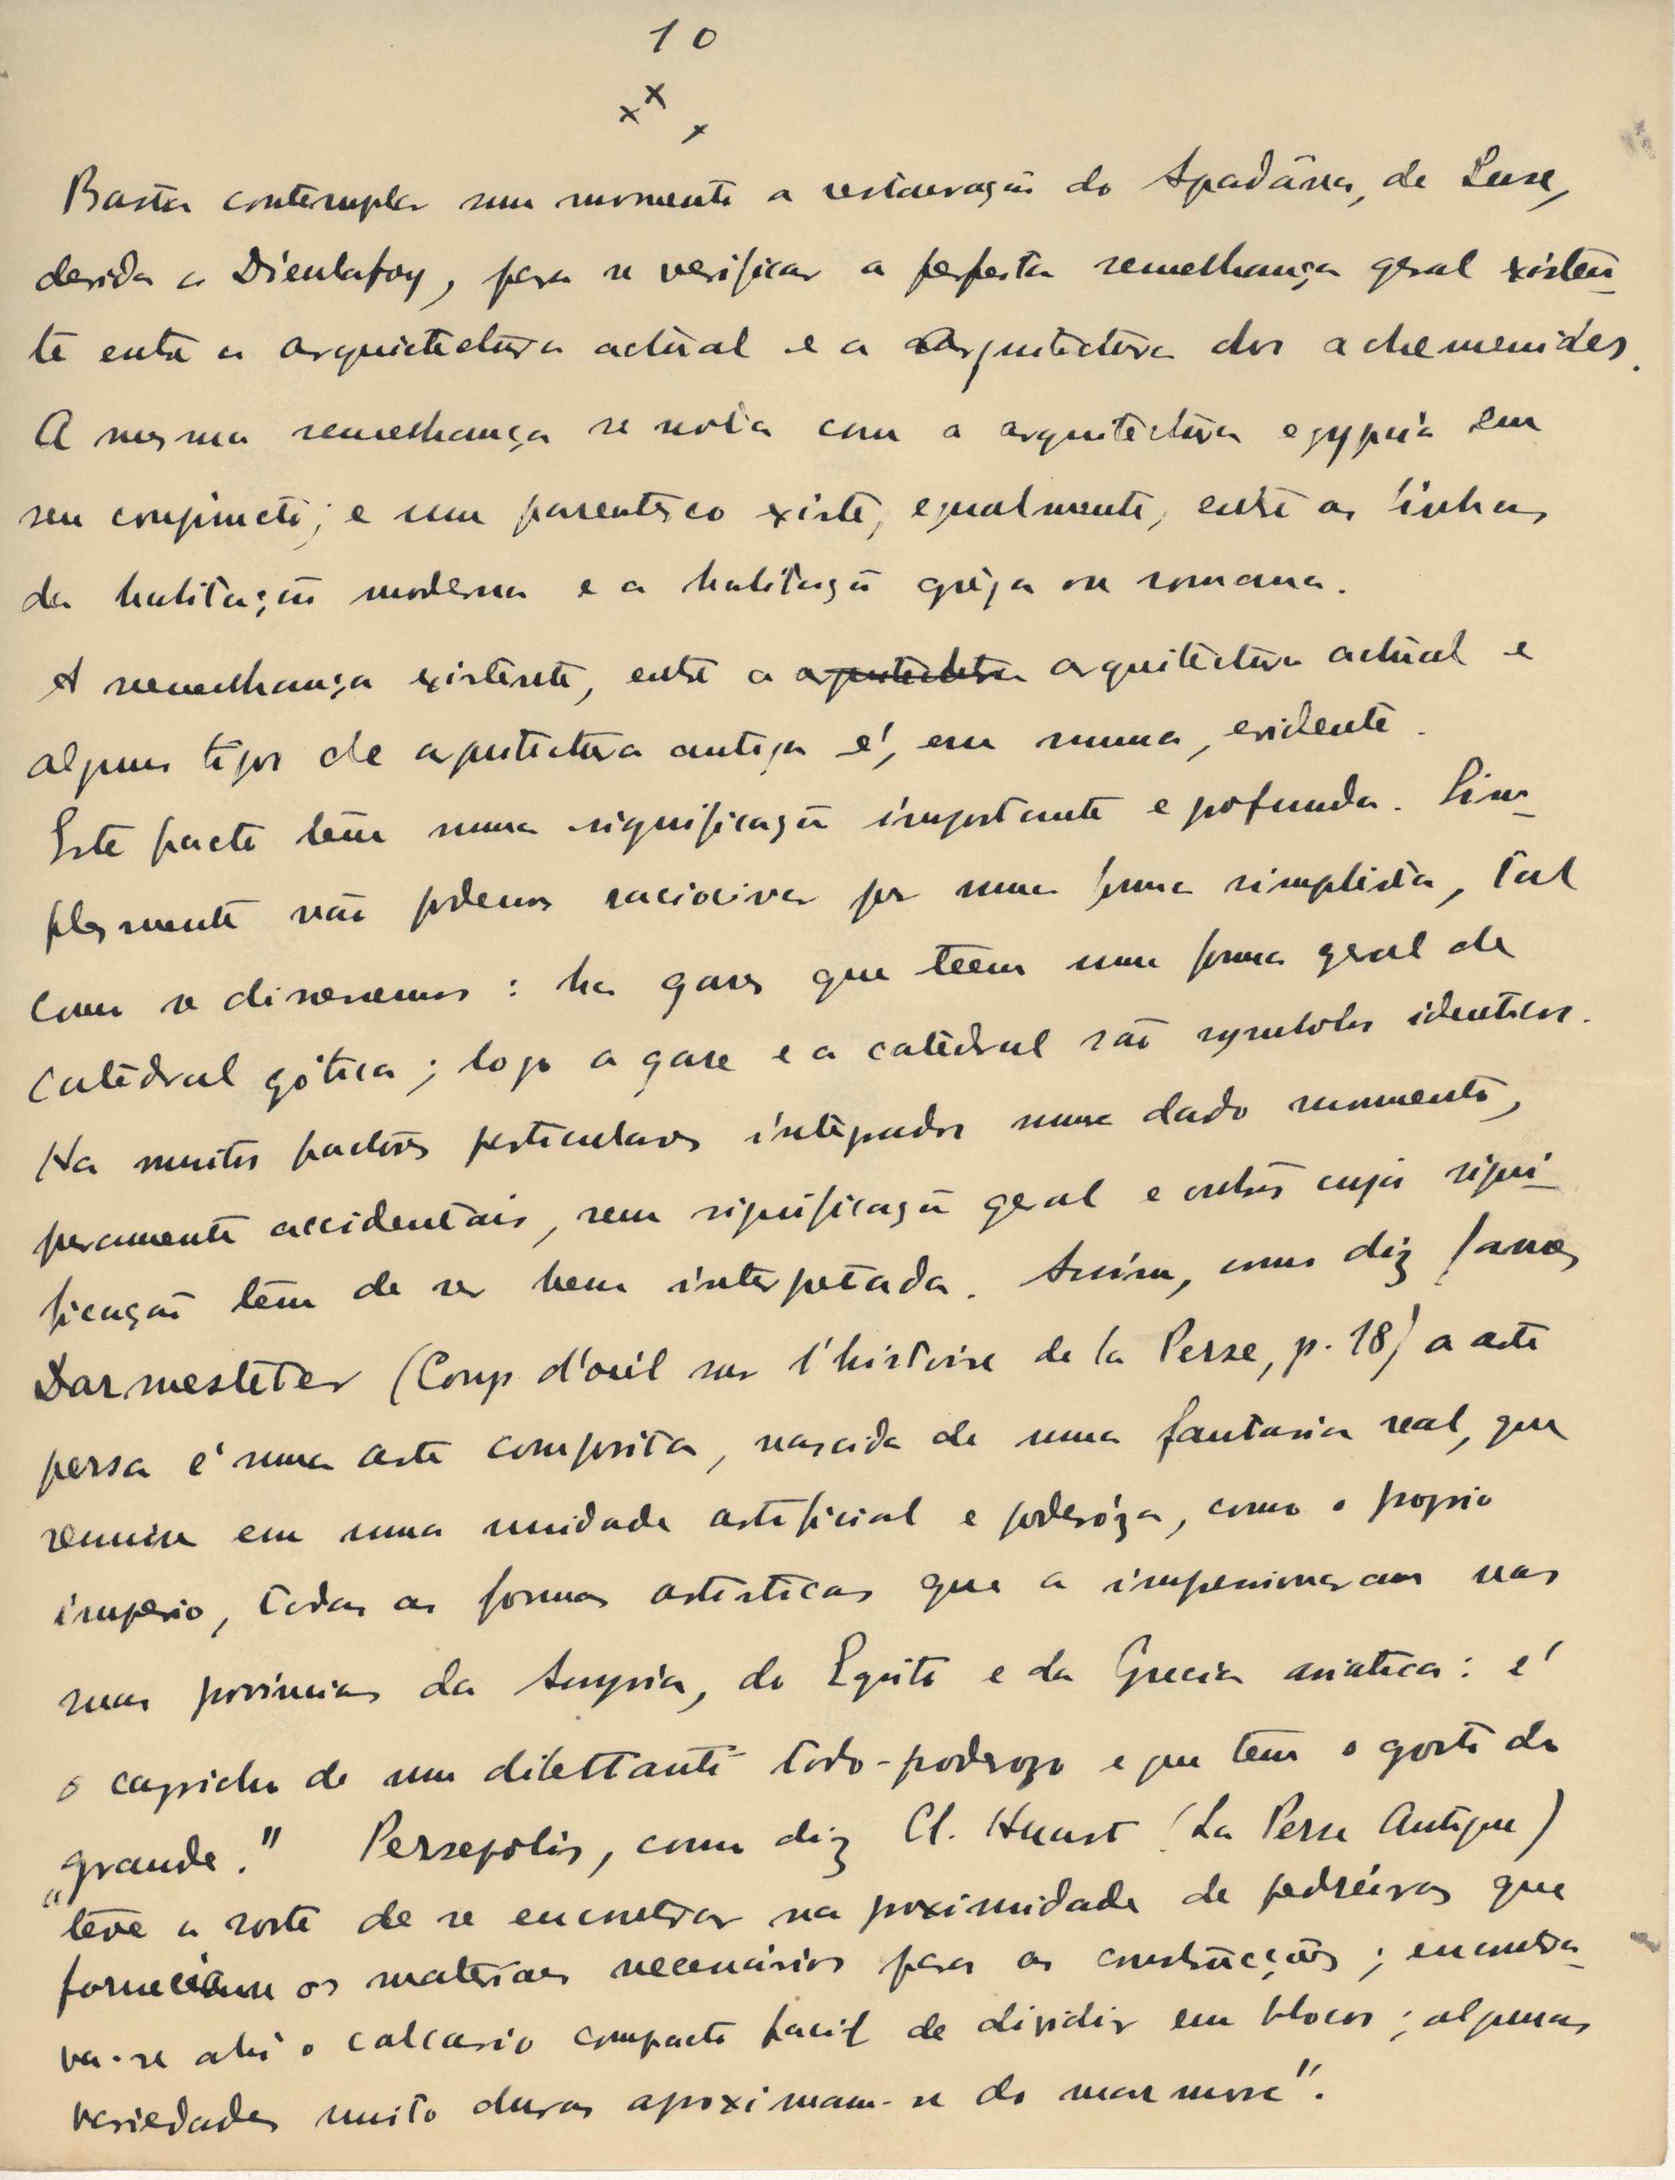 10
x x x
Basta contemplar um momento a restauração do Apadâna, de Suse,
devida a Dieulafoy, para se verificar a perfeita semelhança geral existen-
te entre a arquictectura actual e a arquitectura dos achemenides.
A mesma semelhança se nota com a arquitectura egypcia em
seu conjuncto; e um parentesco existe, egualmente, entre as linhas
da habitação moderna e a habitação grega ou romana.
A semelhança existente, entre a arquitectura arquitectura actual e
alguns tipos de arquitectura antiga é, em summa, evidente.
Este facto têm uma significação importante e profunda. Sim-
plesmente não podemos raciocinar por uma forma simplista, tal
como se dissessemos: ha gares que teem uma forma geral de
catedral gótica; logo a gare e a catedral são symbolos identicos.
Ha muitos factores particulares integrados num dado momento,
puramente accidentais, sem significação geral e outros cuja signi-
ficação têm de ser bem interpretada. Assim, como diz James
Darmesteter (Coup d'oeil sur l'histoire de la Perse, p. 18) a arte
persa é uma arte composita, nascida de uma fantasia real, que
reuniu em uma unidade artificial e poderóza, como o proprio
imperio, todas as formas artisticas que a impressionaram nas
suas provincias da Assyria, do Egito e da Grecia asiatica: é
o capricho de um dilettanti todo-poderozo e que tem o gosto do
grande." Persepolis, como diz Cl. Huart (La Perse Antique)
"teve a sorte de se encontrar na proximidade de pedreiras que
forneciam os materiaes necessários para as construcções; encontra-
va-se ahi o calcario compacto facil de dividir em blocos; algumas
variedades muito duras aproximam-se do marmore".